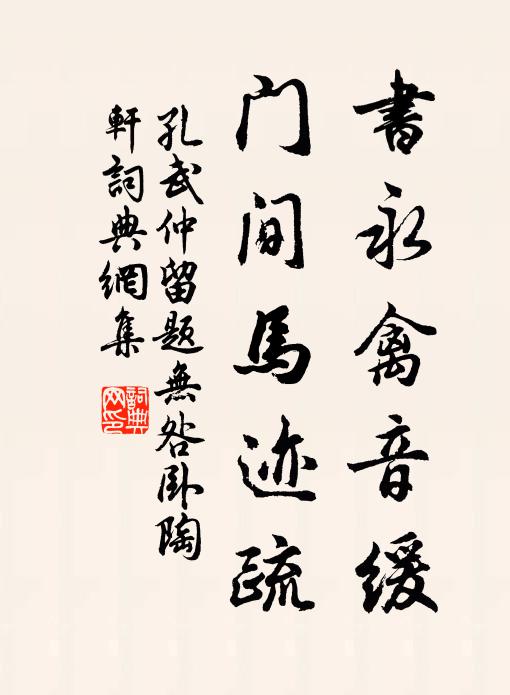 書永禽音緩
门间馬迹疏
孔武仲留題無咎卧陶
軒詞典網集
詞典
网印